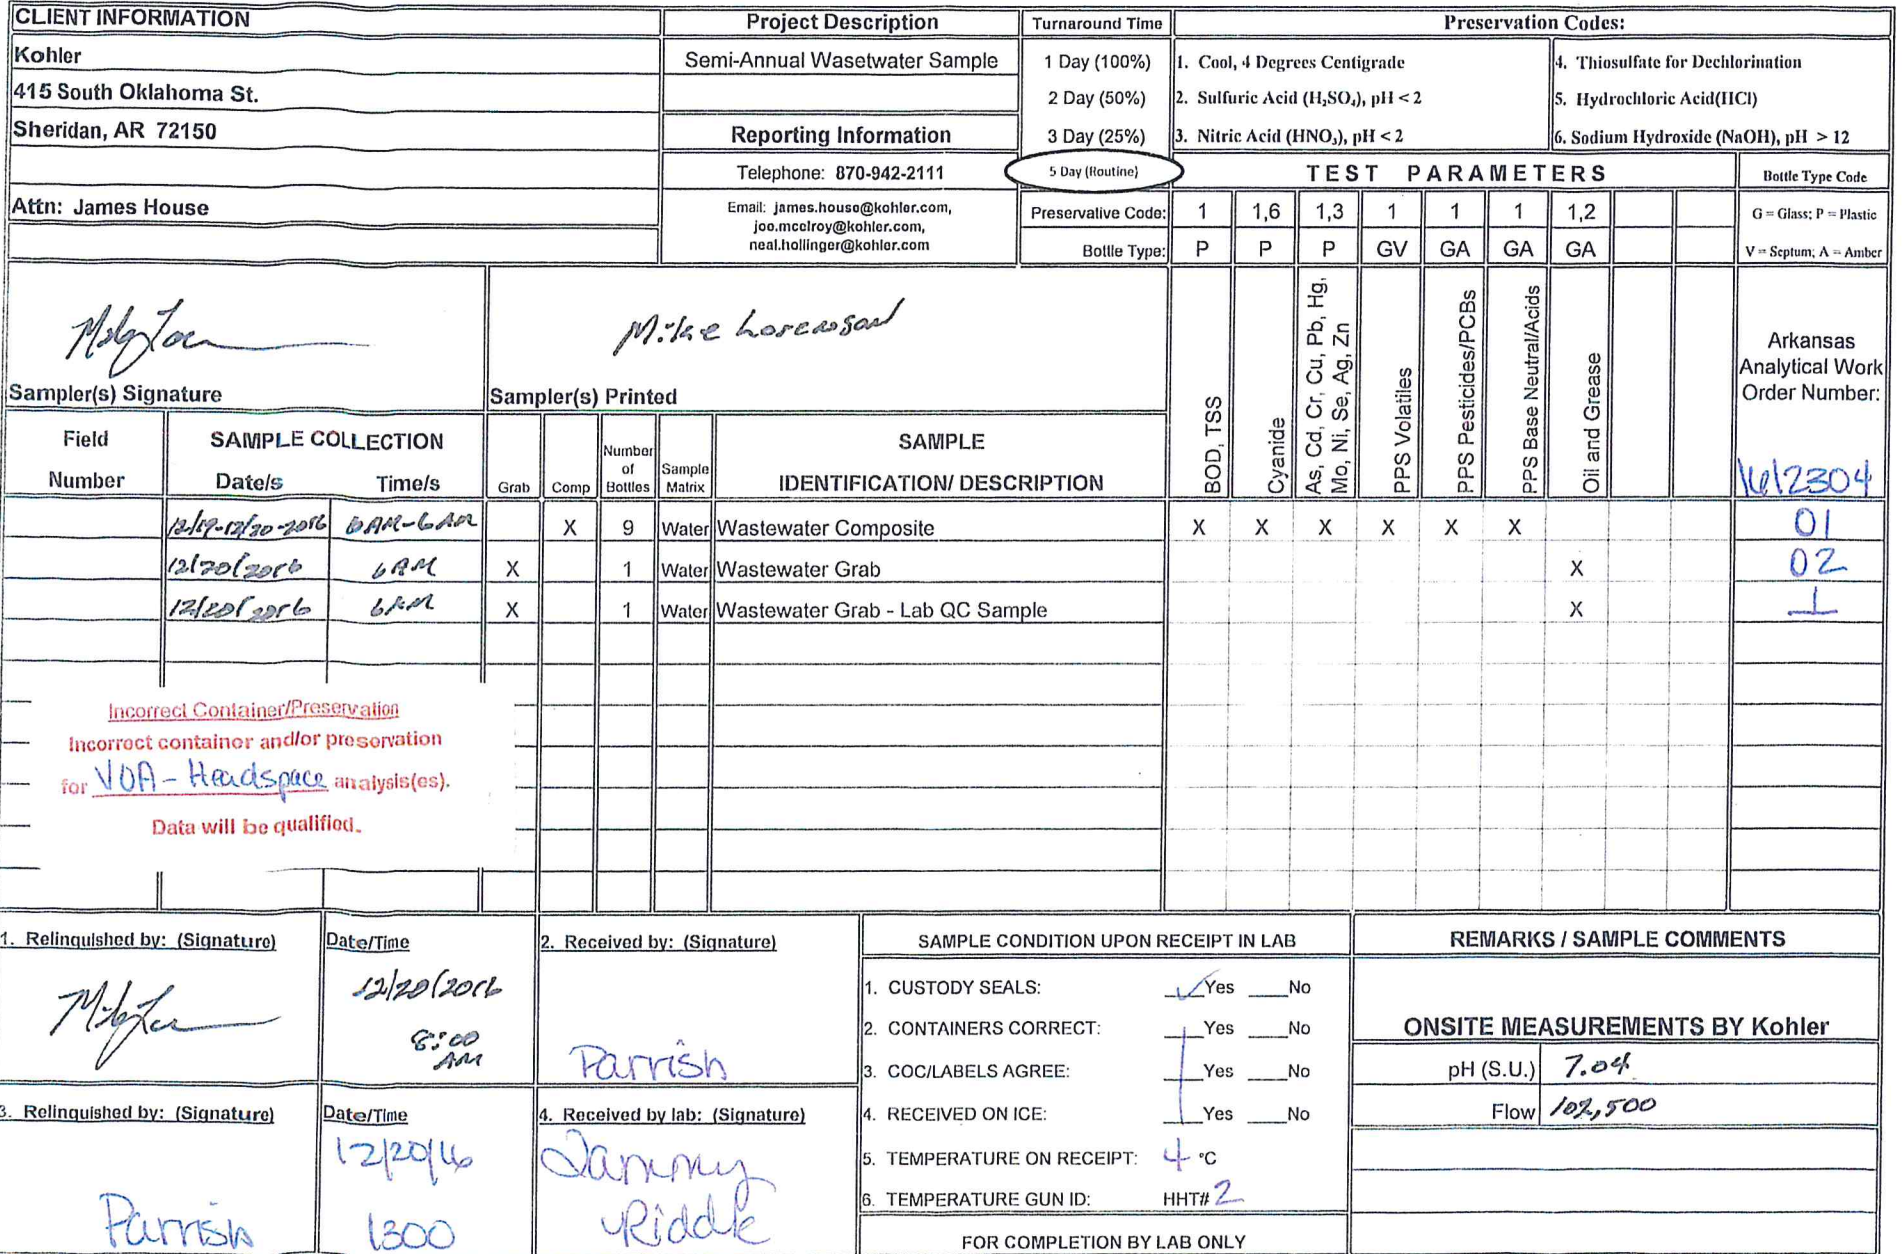 CLIENT INFORMATION
Kohler
415 South Oklahoma St.
Sheridan, AR 72150
Attn: James House
Project Description
Semi-Annual Wasetwater Sample
Reporting Information
Telephone: 870-942-2111
Email: james.house@kohler.com,
joo.mcelroy@kohler.com,
neal.hollinger@kohler.com
Turnaround Time
1 Day (100%)
2 Day (50%)
3 Day (25%)
5 Day (Routine)
Preservation Codes:
1. Cool, 4 Degrees Centigrade
2. Sulfuric Acid (H₂SO₄), pH < 2
3. Nitric Acid (HNO₃), pH < 2
4. Thiosulfate for Dechlorination
5. Hydrochloric Acid(HCl)
6. Sodium Hydroxide (NaOH), pH > 12
TEST PARAMETERS
Bottle Type Code
G = Glass; P = Plastic
V = Septum; A = Amber
Preservative Code: 1 1,6 1,3 1 1 1 1,2
Bottle Type: P P P GV GA GA GA
BOD, TSS
Cyanide
As, Cd, Cr, Cu, Pb, Hg,
Mo, Ni, Se, Ag, Zn
PPS Volatiles
PPS Pesticides/PCBs
PPS Base Neutral/Acids
Oil and Grease
Arkansas
Analytical Work
Order Number:
1612304
Sampler(s) Signature
Mike Lorenson
Sampler(s) Printed
Field
Number
SAMPLE COLLECTION
Date/s Time/s
Grab
Comp
Number
of
Bottles
Sample
Matrix
SAMPLE
IDENTIFICATION/ DESCRIPTION
12/19-12/20-2016 6AM-6AM X 9 Water Wastewater Composite X X X X X X 01
12/20/2016 6AM X 1 Water Wastewater Grab X 02
12/20/2016 6AM X 1 Water Wastewater Grab - Lab QC Sample X
Incorrect Container/Preservation
Incorrect container and/or preservation
for VOA - Headspace analysis(es).
Data will be qualified.
1. Relinquished by: (Signature)
Date/Time
12/20/2016
8:00
AM
2. Received by: (Signature)
Parrish
3. Relinquished by: (Signature)
Parrish
Date/Time
12/20/16
1300
4. Received by lab: (Signature)
Tammy
Riddle
SAMPLE CONDITION UPON RECEIPT IN LAB
1. CUSTODY SEALS: ✓Yes ___No
2. CONTAINERS CORRECT: ___Yes ___No
3. COC/LABELS AGREE: ___Yes ___No
4. RECEIVED ON ICE: ___Yes ___No
5. TEMPERATURE ON RECEIPT: 4 °C
6. TEMPERATURE GUN ID: HHT# 2
FOR COMPLETION BY LAB ONLY
REMARKS / SAMPLE COMMENTS
ONSITE MEASUREMENTS BY Kohler
pH (S.U.) 7.04
Flow 102,500